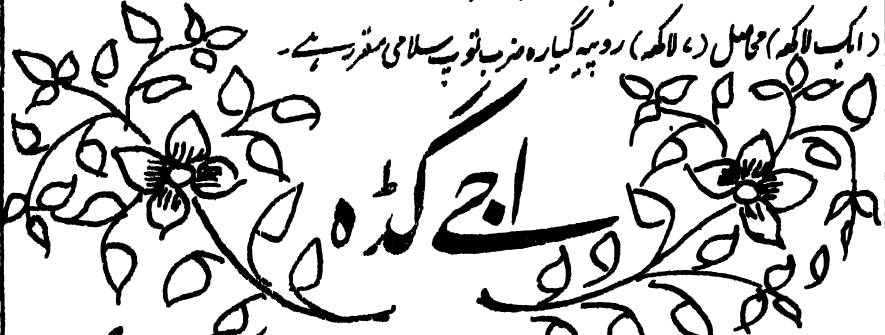 (ایک لاکھ) محاصل (، لاکھ) روپیہ گیارہ ضرب توپ سلامی مقرر ہے۔
اجے گڈہ